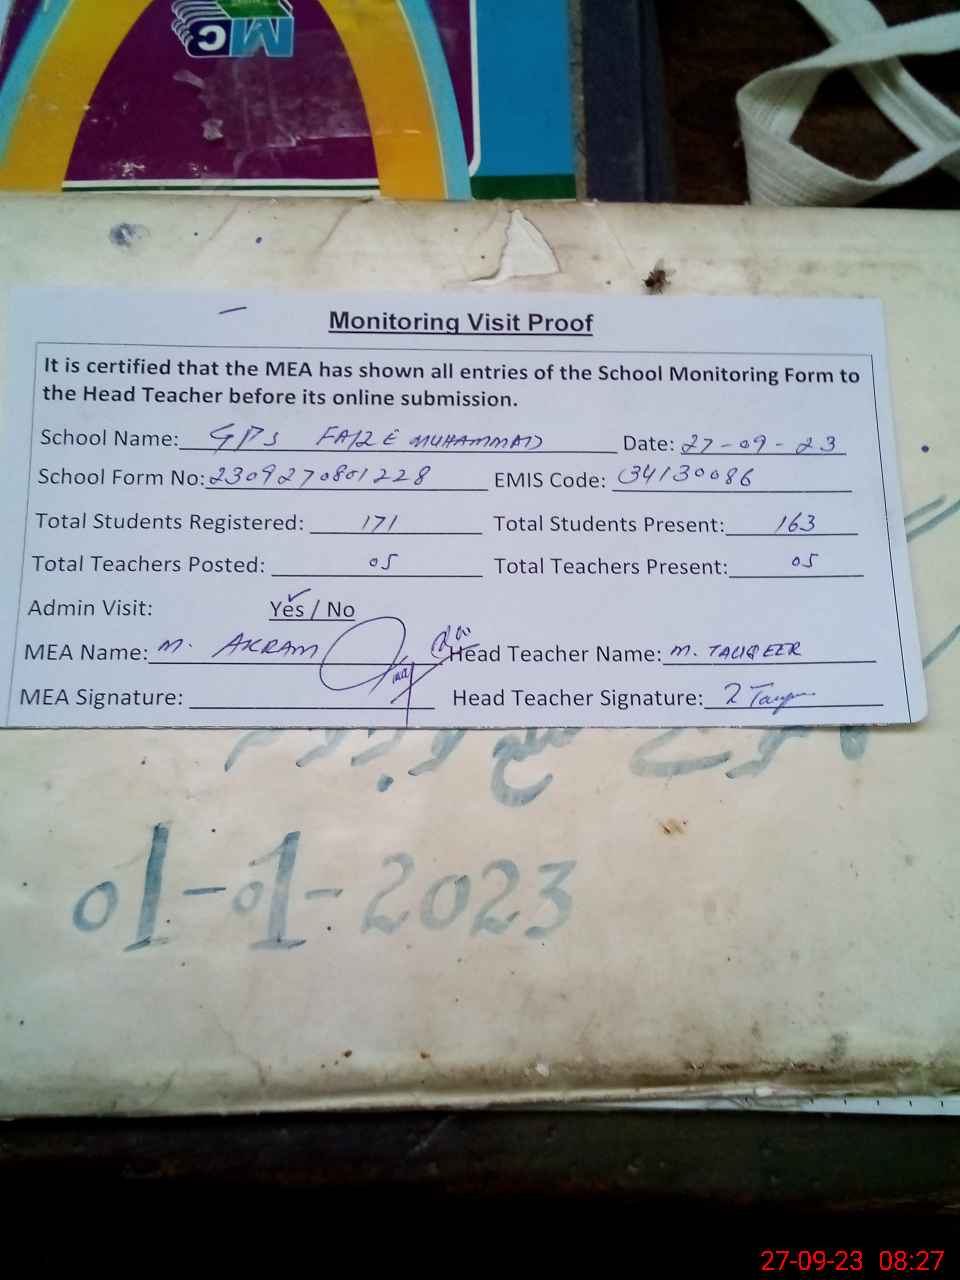 MC
Monitoring Visit Proof
It is certified that the MEA has shown all entries of the School Monitoring Form to
the Head Teacher before its online submission.
School Name: GPS FAIZ E MUHAMMAD Date: 27-09-23
School Form No: 2309270801228 EMIS Code: 34130086
Total Students Registered: 171 Total Students Present: 163
Total Teachers Posted: 05 Total Teachers Present: 05
Admin Visit: Yes / No
MEA Name: M. AKRAM Head Teacher Name: M. TAUQEER
MEA Signature: Head Teacher Signature:
01-01-2023
27-09-23 08:27